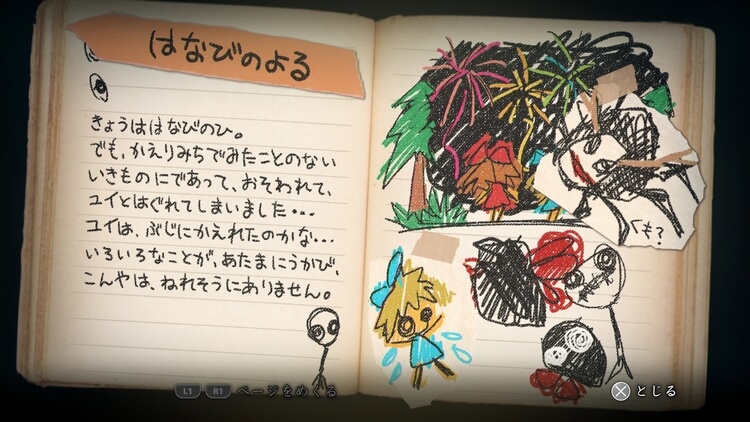 はなびのよる
きょうははなびのひ。
でも、かえりみちでみたことのない
いきものにであって、おそわれて、
ユイとはぐれてしまいました・・・
ユイは、ぶじにかえれたのかな・・・
いろいろなことが、あたまにうかび、
こんやは、ねれそうにありません。
くも?
L1 R1 ページをめくる
とじる